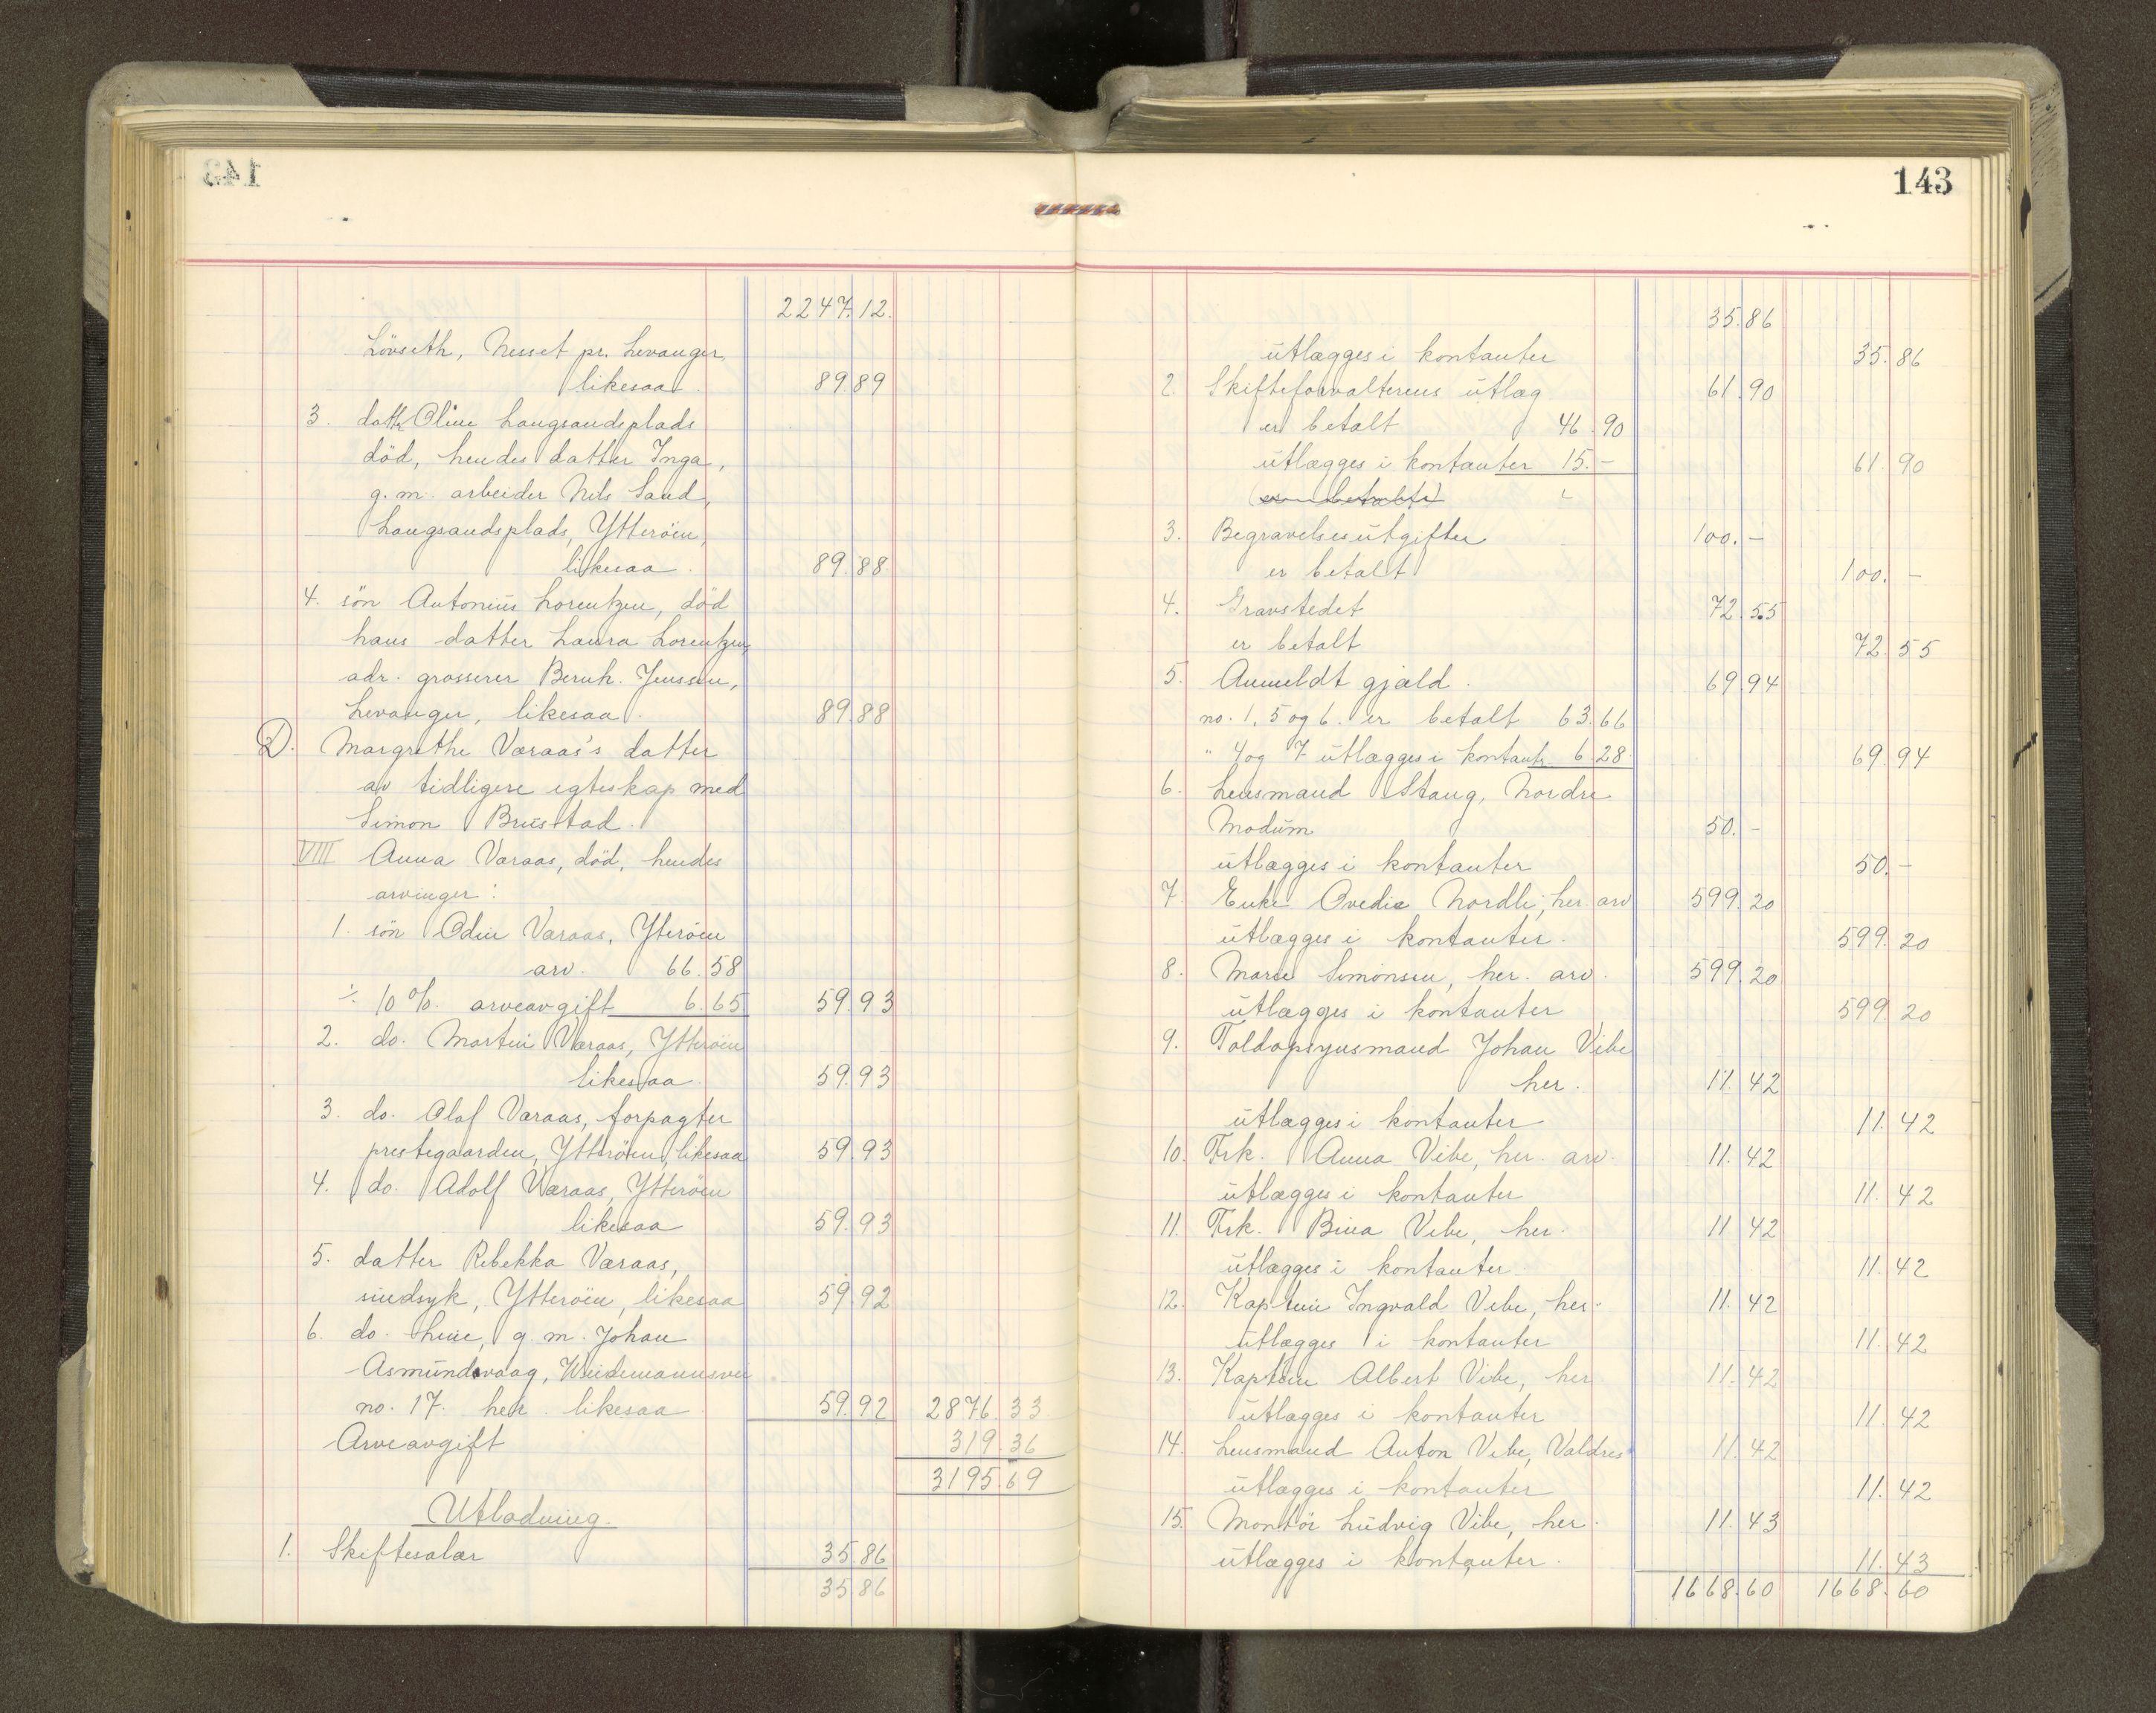 143
2247.12.
Lövseth, Nesset pr. Levanger,
likesaa. 89.89
3. datter Oline Langsandsplads
död, hendes datter Inga,
g. m. arbeider Nils Sand,
Langsandsplads, Ytteröen,
likesaa. 89.88.
4. sön Antonius Lorentzen, död
hans datter Laura Lorentzen,
adr. grosserer Bernh. Jenssen,
Levanger, likesaa. 89.88
D. Margrethe Væraas's datter
av tidligere egteskap med
Simon Brustad.
VIII Anna Væraas, död, hendes
arvinger:
1. sön Odin Væraas, Yteröen
arv. 66.58
÷ 10 %. arveavgift 6.65 59.93
2. do. Martin Væraas, Ytteröen
likesaa. 59.93
3. do. Olaf Væraas, forpagter
prestegaarden, Ytteröen, likesaa 59.93
4. do. Adolf Væraas, Ytteröen
likesaa 59.93
5. datter Rebekka Væraas,
sindsyk, Ytteröen, likesaa 59.92
6. do. Line, g. m. Johan
Asmundvaag, Weidemannsvei
no. 17. her. likesaa 59.92 2876.33
Arveavgift 319.36
3195.69
Utlodning.
1. Skiftesalær 35.86
35.86
143
35.86
utlægges i kontanter 35.86
2. Skifteforvalterens utlæg 61.90
er betalt 46.90
utlægges i kontanter 15.- 61.90
(er betalt)
3. Begravelsesutgifter 100.-
er betalt 100.-
4. Gravstedet 72.55
er betalt 72.55
5. Anmeldt gjæld. 69.94
no. 1, 5 og 6. er betalt 63.66
" 4 og 7 utlægges i kontantr. 6.28. 69.94
6. Lensmand Stang, Nordre
Modum 50.-
utlægges i kontanter 50.-
7. Enke Ovedie Nordli, her. arv 599.20
utlægges i kontanter. 599.20
8. Marie Simonsen, her. arv. 599.20
utlægges i kontanter 599.20
9. Toldopsynsmand Johan Vibe
her. 11.42
utlægges i kontanter 11.42
10. Frk. Anna Vibe, her. arv. 11.42
utlægges i kontanter 11.42
11. Frk. Bina Vibe, her. 11.42
utlægges i kontanter. 11.42
12. Kaptein Ingvald Vibe, her. 11.42
utlægges i kontanter 11.42
13. Kaptein Albert Vibe, her 11.42
utlægges i kontanter 11.42
14. Lensmand Anton Vibe, Valdres 11.42
utlægges i kontanter 11.42
15. Montör Ludvig Vibe, her. 11.43
utlægges i kontanter. 11.43
1668.60 1668.60